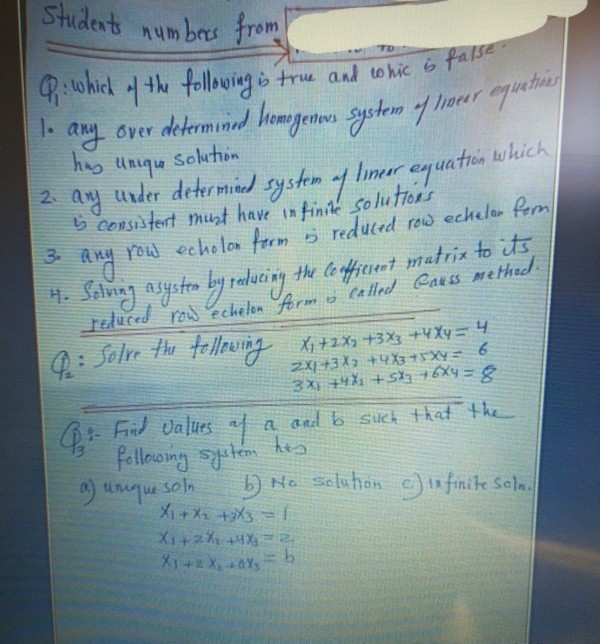 Students numbers from
Q1: which of the following is true and whic is false.
1. any over determined homogenous system of linear equations
has unique solution
2. any under determined system of linear equation which
is consistent must have infinite solutions
3. any row echolon form is reduced row echelon form
4. Solving a system by reducing the Coefficient matrix to its
reduced row echelon form is called Gauss method.
Q2: Solve the following x1 + 2x2 + 3x3 + 4x4 = 4
2x1 + 3x2 + 4x3 + 5x4 = 6
3x1 + 4x2 + 5x3 + 6x4 = 8
Q3:- Find values of a and b such that the
following system has
a) unique soln b) No solution c) infinite soln.
x1 + x2 + 3x3 = 1
x1 + 2x2 + 4x3 = 2
x1 + 2x2 + ax3 = b